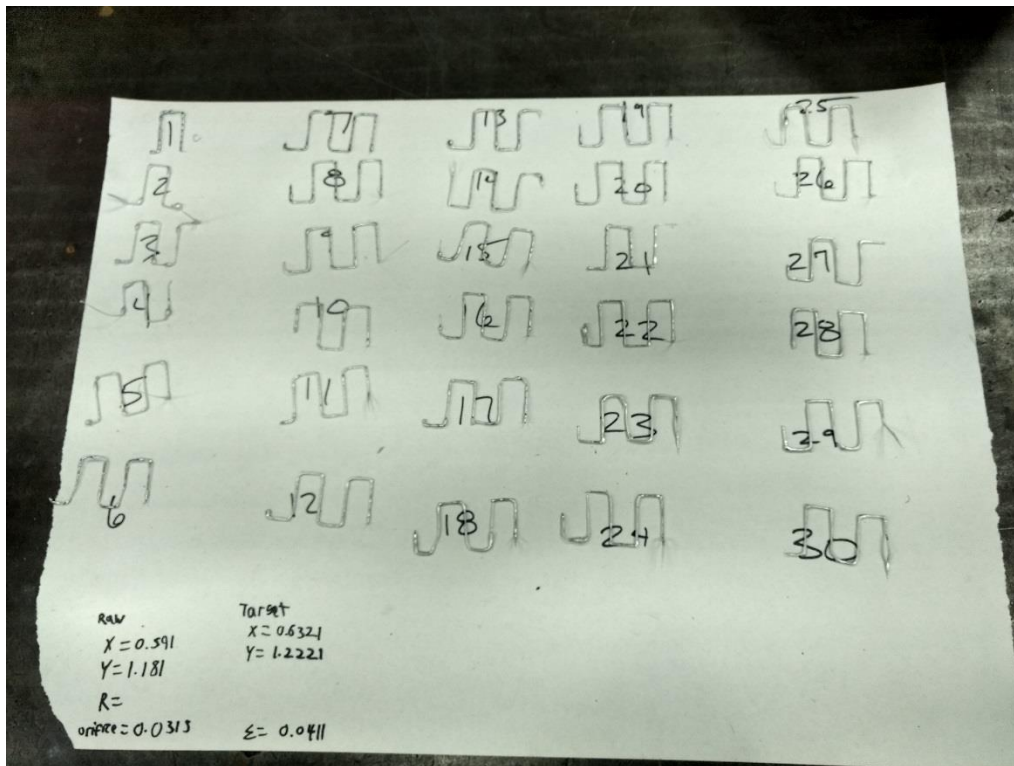 1
2
3
4
5
6
7
8
9
10
11
12
13
14
15
16
17
18
19
20
21
22
23
24
25
26
27
28
29
30
Raw
X=0.591
Y=1.181
R=
orifice=0.0313
Target
X=0.6321
Y=1.2221
ε=0.0411